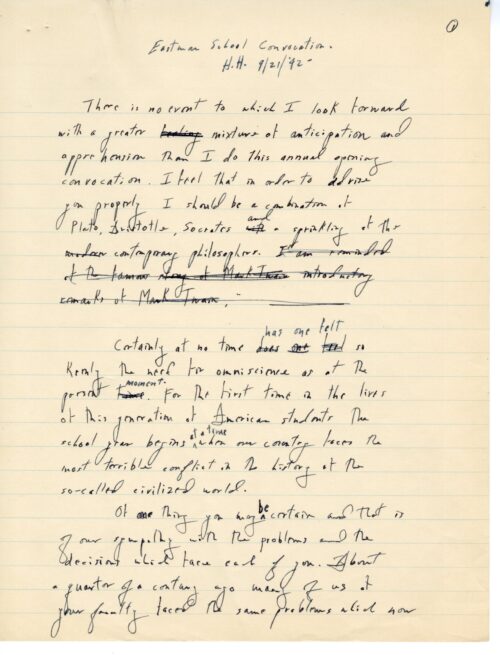 1
Eastman School Convocation.
H.H. 9/21/42-
There is no event to which I look forward
with a greater feeling mixture of anticipation and
apprehension than I do this annual opening
convocation. I feel that in order to advise
you properly I should be a combination of
Plato, Aristotle, Socrates with and a sprinkling of the
modern contemporary philosophers. I am reminded
of the famous of Mark Twain introductory
remarks of Mark Twain,-
Certainly at no time does one feel has one felt so
Keenly the need for omniscience as at the
present time moment. For the first time in the lives
of this generation of American students the
school year begins at a time when our country faces the
most terrible conflict in the history of the
so-called civilized world.
Of one thing you may be certain and that is
of our sympathy with the problems and the
decisions which face each of you. About
a quarter of a century ago many of us of
your faculty faced the same problems which now